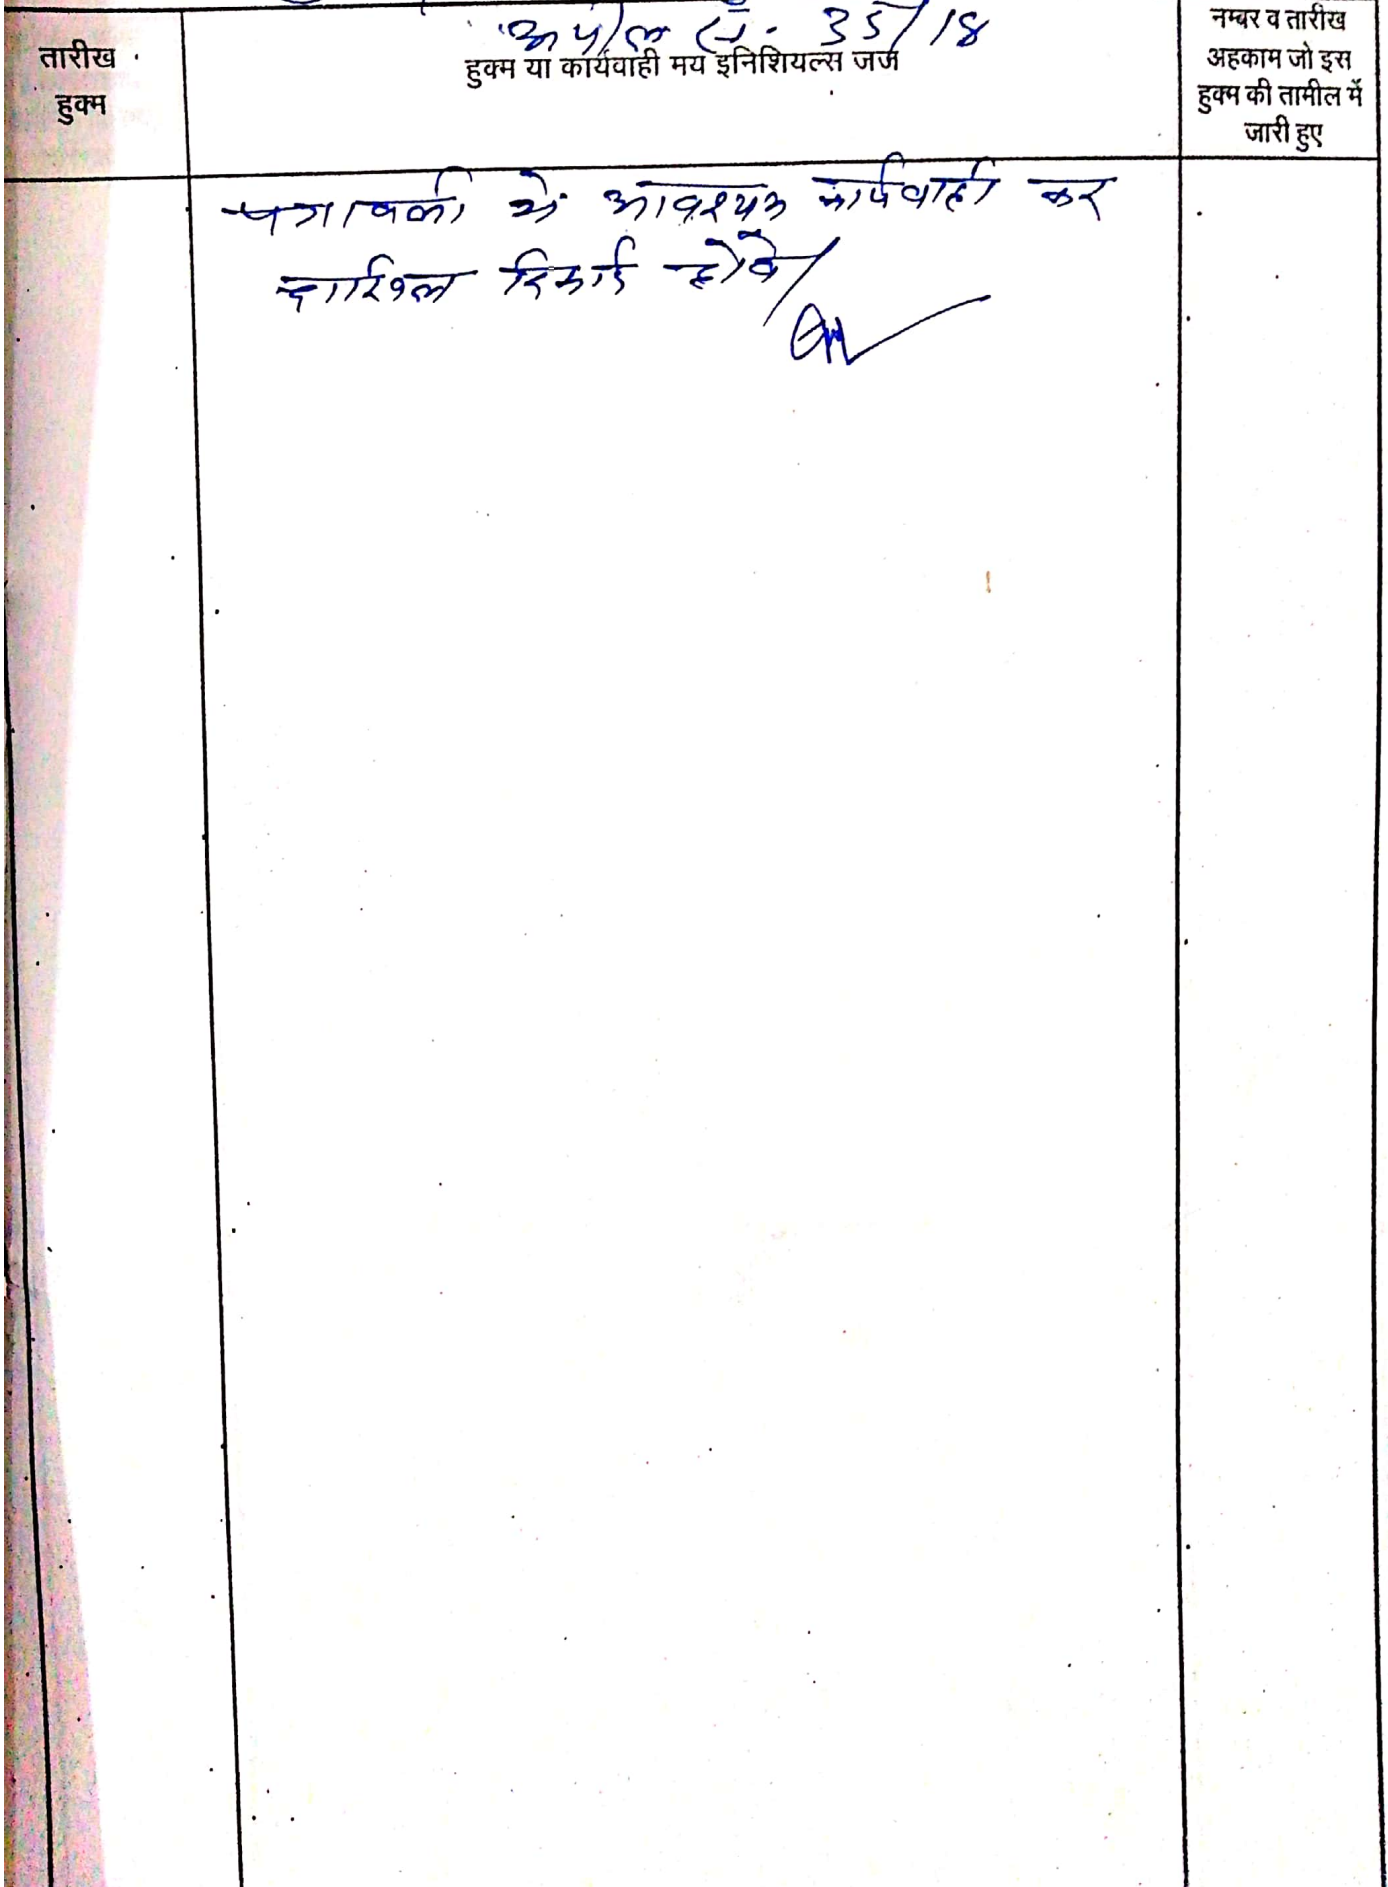 अपील सं. 35/18
तारीख
हुक्म
हुक्म या कार्यवाही मय इनिशियल्स जज
नम्बर व तारीख
अहकाम जो इस
हुक्म की तामील में
जारी हुए
पत्रावली में आवश्यक कार्यवाही कर
दाखिल रिकार्ड होवे।